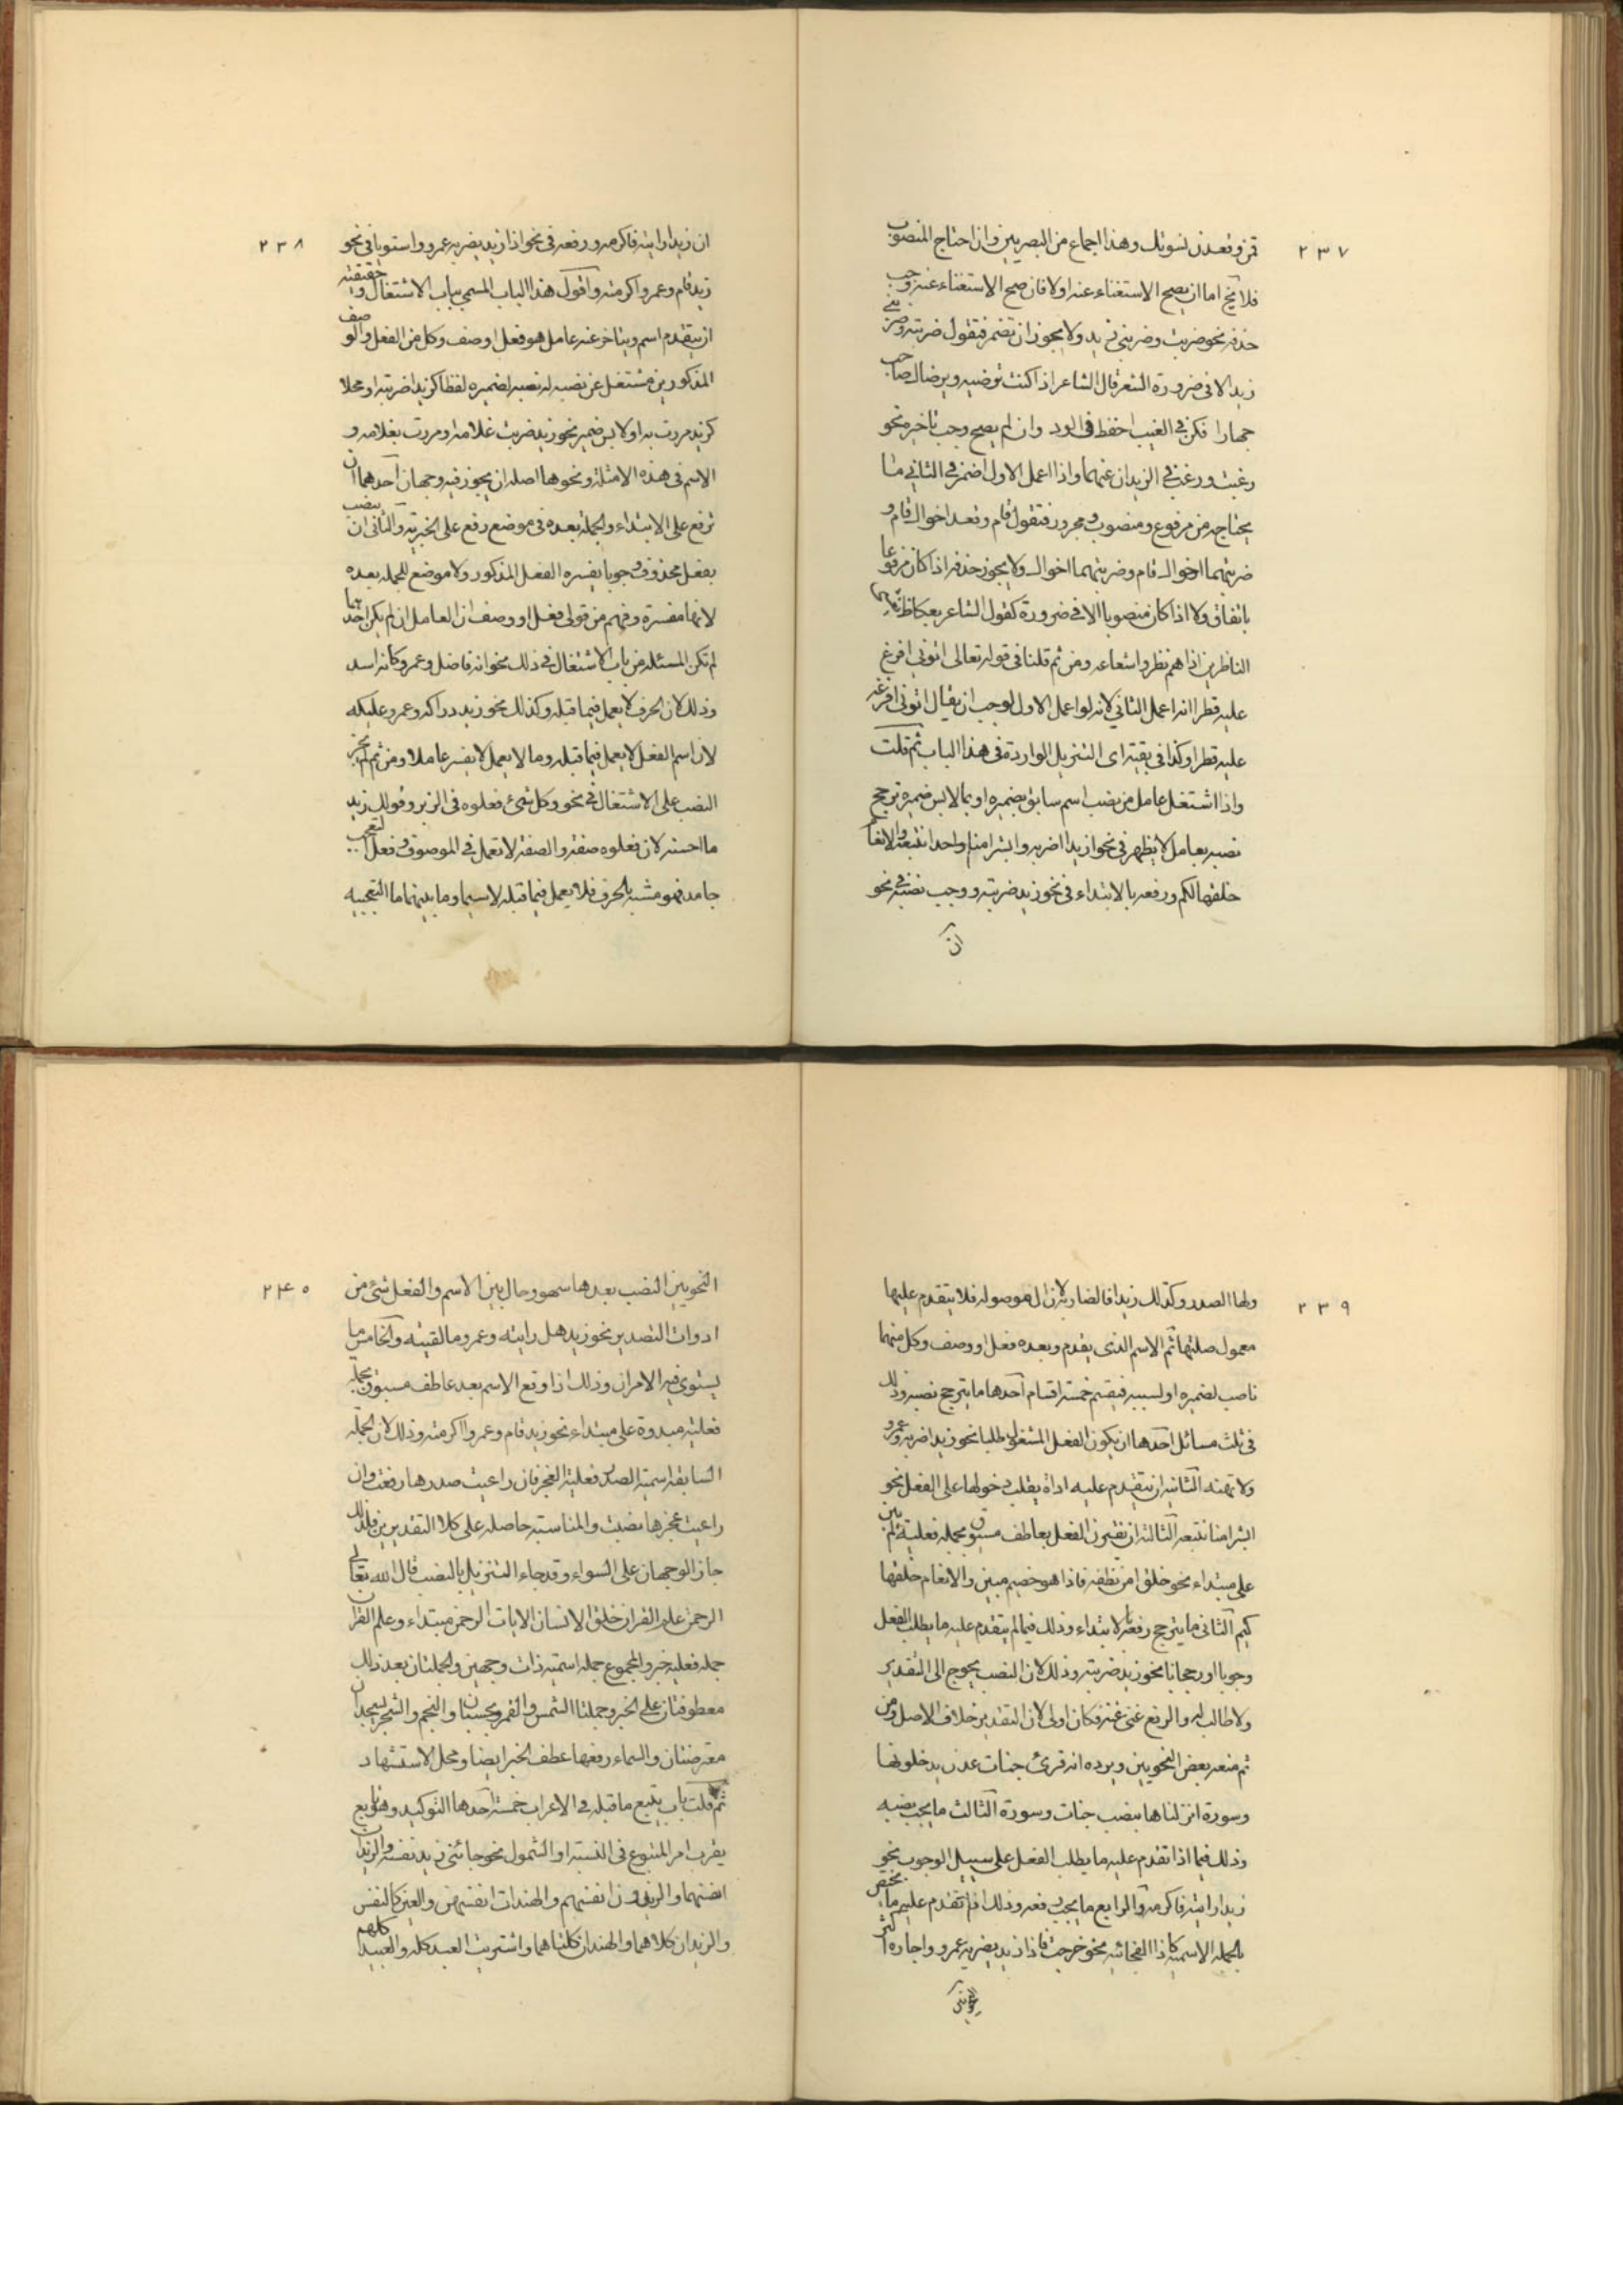 ٢٣٧
قمن وقعدن نسوتك وهذا اجماع من البصريين وان احتاج المنصوب
فلا يخ اما ان يصح الاستغناء عنه اولا فان صح الاستغناء عنه وجب
حذفه نحو ضربت وضربني زيد ولا يجوز ان تضمر فتقول ضربته وضربني
زيد الا في ضرورة الشعر قال الشاعر اذا كنت ترضيه ويرضيك صاحب
جهارا فكن في الغيب احفظ في الود وان لم يصح وجب تاخيره نحو
رغبت ورغب في الزيدان عنهما واذا اعمل الاول اضمر في الثاني ما
يحتاجه من مرفوع ومنصوب ومجرور فتقول قام وقعدا اخواك وقام و
ضربتهما اخواك قام وضربتهما اخواك ولا يجوز حذفه اذا كان مرفوعا
باتفاق ولا اذا كان منصوبا الا في ضرورة كقول الشاعر بعكاظ يعشى
الناظرين اذا هم نظروا شعاعه ومن ثم قلنا في قوله تعالى اتوني افرغ
عليه قطرا انه اعمل الثاني لانه لو اعمل الاول لوجب ان يقال اتوني افرغه
عليه قطرا وكذا في بقية اى التنزيل الواردة في هذا الباب ثم قلت
واذا اشتغل عامل من نصب اسم سابق بضميره او بملابس ضميره ترجح
نصبه بعامل لا يظهر في نحو ازيدا اضربه وابشرا منا واحدا نتبعه والانعام
خلقها لكم ورفعه بالابتداء في نحو زيد ضربته ووجب نصبه في نحو
ان
٢٣٨
ان زيدا رايته فاكرمه ورفعه في نحو اذا زيد يضربه عمرو واستويا في نحو
زيد قام وعمرو اكرمته واقول هذا الباب المسمى بباب الاشتغال وحقيقته
ان يتقدم اسم ويتاخر عنه عامل هو فعل او صف وكل من الفعل والوصف
المذكورين مشتغل عن نصبه له بنصبه لضميره لفظا كزيدا ضربته او محلا
كزيد مررت به او لابس ضميره نحو زيد ضربت غلامه او مررت بغلامه و
الاسم في هذه الامثلة ونحوها اصله ان يجوز فيه وجهان احدهما ان
ترفع على الابتداء والجملة بعده في موضع رفع على الخبرية والثاني ان ينصب
بفعل محذوف وجوبا يفسره الفعل المذكور ولا موضع للجملة بعده
لانها مفسرة وفهم من قولى فعل او وصف ان العامل ان لم يكن احدهما
لم تكن المسئلة من باب الاشتغال في ذلك نحو انه فاضل وعمرو كانه اسد
وذلك لان الحرف لا يعمل فيما قبله وكذلك نحو زيد دراكه وعمرو عليكه
لان اسم الفعل لا يعمل فيما قبله وما لا يعمل لا يفسر عاملا ومن ثم لم يجز
النصب على الاشتغال في نحو وكل شئ فعلوه في الزبر وقولك زيد
ما احسنه لان فعلوه صفة والصفة لا تعمل في الموصوف وفعل التعجب
جامد فهو مشبه بالحرف فلا يعمل فيما قبله لا سيما وما بينهما ما التعجبية
٢٣٩
ولها الصدر وكذلك زيدا فالضاربه لان ال موصولة فلا يتقدم عليها
معمول صلتها ثم الاسم الذي يقدم وبعده فعل او وصف وكل منهما
ناصب لضميره او لسببيه فينقسم خمسة اقسام احدها ما يترجح نصبه وذلك
في ثلث مسائل احدها ان يكون الفعل المشغول طلبا نحو زيدا اضربه وعمرو
ولا تهنه الثانية ان يتقدم عليه اداة يغلب دخولها على الفعل نحو
ابشرا منا نتبعه الثالثة ان يقترن الفعل بعاطف مسبوق بجملة فعلية لم تبن
على مبتداء نحو خلق من نطفة فاذا هو خصيم مبين والانعام خلقها
لكم الثاني ما يترجح رفعه بالابتداء وذلك فيما لم يتقدم عليه ما يطلب الفعل
وجوبا او رجحانا نحو زيد ضربته وذلك لان النصب يحوج الى التقدير
ولا طالب له والرفع غني عنه فكان اولى لان التقدير خلاف الاصل ومن
ثم منعه بعض النحويين ويرده انه قرئ جنات عدن يدخلونها
وسورة انزلناها بنصب جنات وسورة الثالث ما يجب نصبه
وذلك فيما اذا تقدم عليه ما يطلب الفعل على سبيل الوجوب نحو
زيدا رايته فاكرمه والرابع ما يجب رفعه وذلك اذا تقدم عليه ما يختص
بالجملة الاسمية كاذا الفجائية نحو خرجت فاذا زيد يضربه عمرو واجازه اكثر
النحويين
٢٤٠
النحويين النصب بعدها سهو وحال بين الاسم والفعل شئ من
ادوات التصدير نحو زيد هل رايته وعمرو ما لقيته والخامس ما
يستوي فيه الامران وذلك اذا وقع الاسم بعد عاطف مسبوق بجملة
فعلية مبدوة على مبتداء نحو زيد قام وعمرو اكرمته وذلك لان الجملة
السابقة اسمية الصدر فعلية العجز فان راعيت صدرها رفعت وان
راعيت عجزها نصبت والمناسبة حاصلة على كلا التقديرين فلذلك
جاز الوجهان على السواء وقد جاء التنزيل بالنصب قال الله تعالى
الرحمن علم القران خلق الانسان الايات الرحمن مبتداء وعلم القران
جملة فعلية خبر والمجموع جملة اسمية ذات وجهين والجملتان بعد ذلك
معطوفتان على الخبر وجملتا الشمس والقمر بحسبان والنجم والشجر يسجدان
معترضتان والسماء رفعها عطف الخبر ايضا ومحل الاستشهاد
ثم قلت باب يتبع ما قبله في الاعراب خمسة احدها التوكيد وهو تابع
يقرب امر المتبوع في النسبة او الشمول نحو جائني زيد نفسه والزيدان
انفسهما والزيدون انفسهم والهندات انفسهن والعين كالنفس
والزيدان كلاهما والهندان كلتاهما واشتريت العبد كله والعبيد كلهم